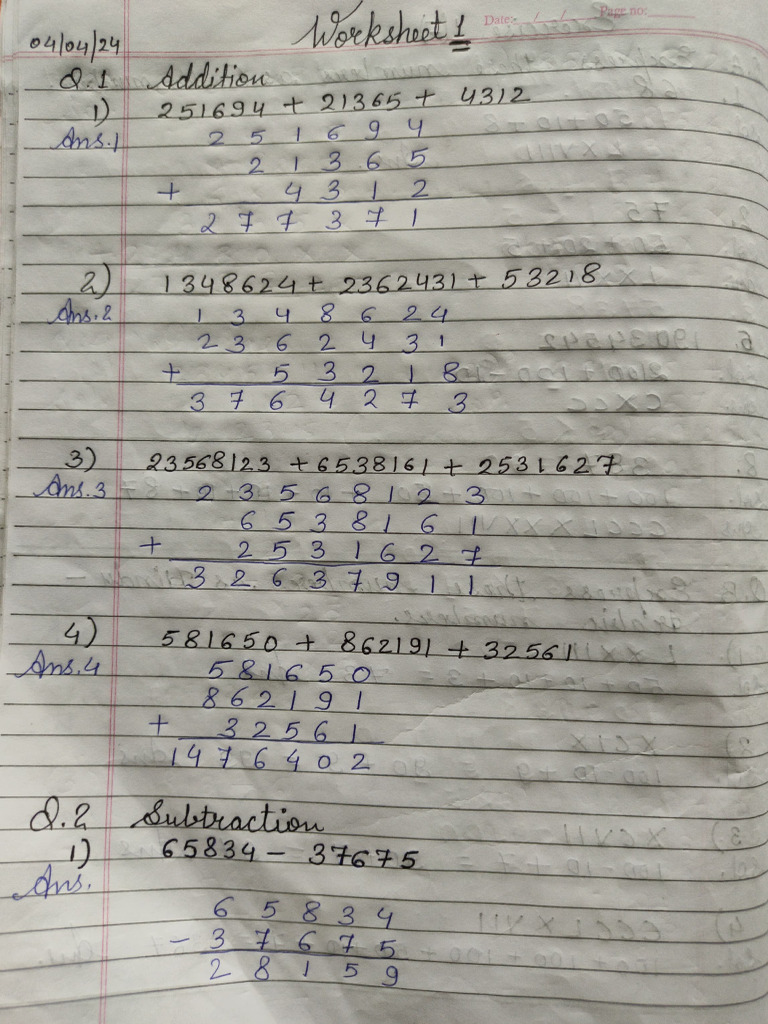 Worksheet 1
Date:- __/__/__ Page no:______
04/04/24
Q.1 Addition
1) 251694 + 21365 + 4312
Ans.1 2 5 1 6 9 4
2 1 3 6 5
+ 4 3 1 2
2 7 7 3 7 1
2) 1348624 + 2362431 + 53218
Ans.2 1 3 4 8 6 2 4
2 3 6 2 4 3 1
+ 5 3 2 1 8
3 7 6 4 2 7 3
3) 23568123 + 6538161 + 2531627
Ans.3 2 3 5 6 8 1 2 3
6 5 3 8 1 6 1
+ 2 5 3 1 6 2 7
3 2 6 3 7 9 1 1
4) 581650 + 862191 + 32561
Ans.4 5 8 1 6 5 0
8 6 2 1 9 1
+ 3 2 5 6 1
1 4 7 6 4 0 2
Q.2 Subtraction
1) 65834 - 37675
Ans.
6 5 8 3 4
- 3 7 6 7 5
2 8 1 5 9